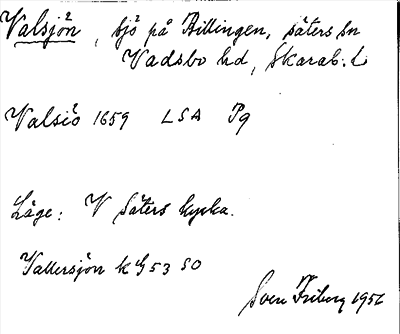 Valsjön, sjö på Billingen, säters sn
Vadsbo hd, Skarab. L
Valsiö 1659 LSA P9
Läge: V Säters kyrka.
Vallersjön k G53 SO
Sven Friberg 1956